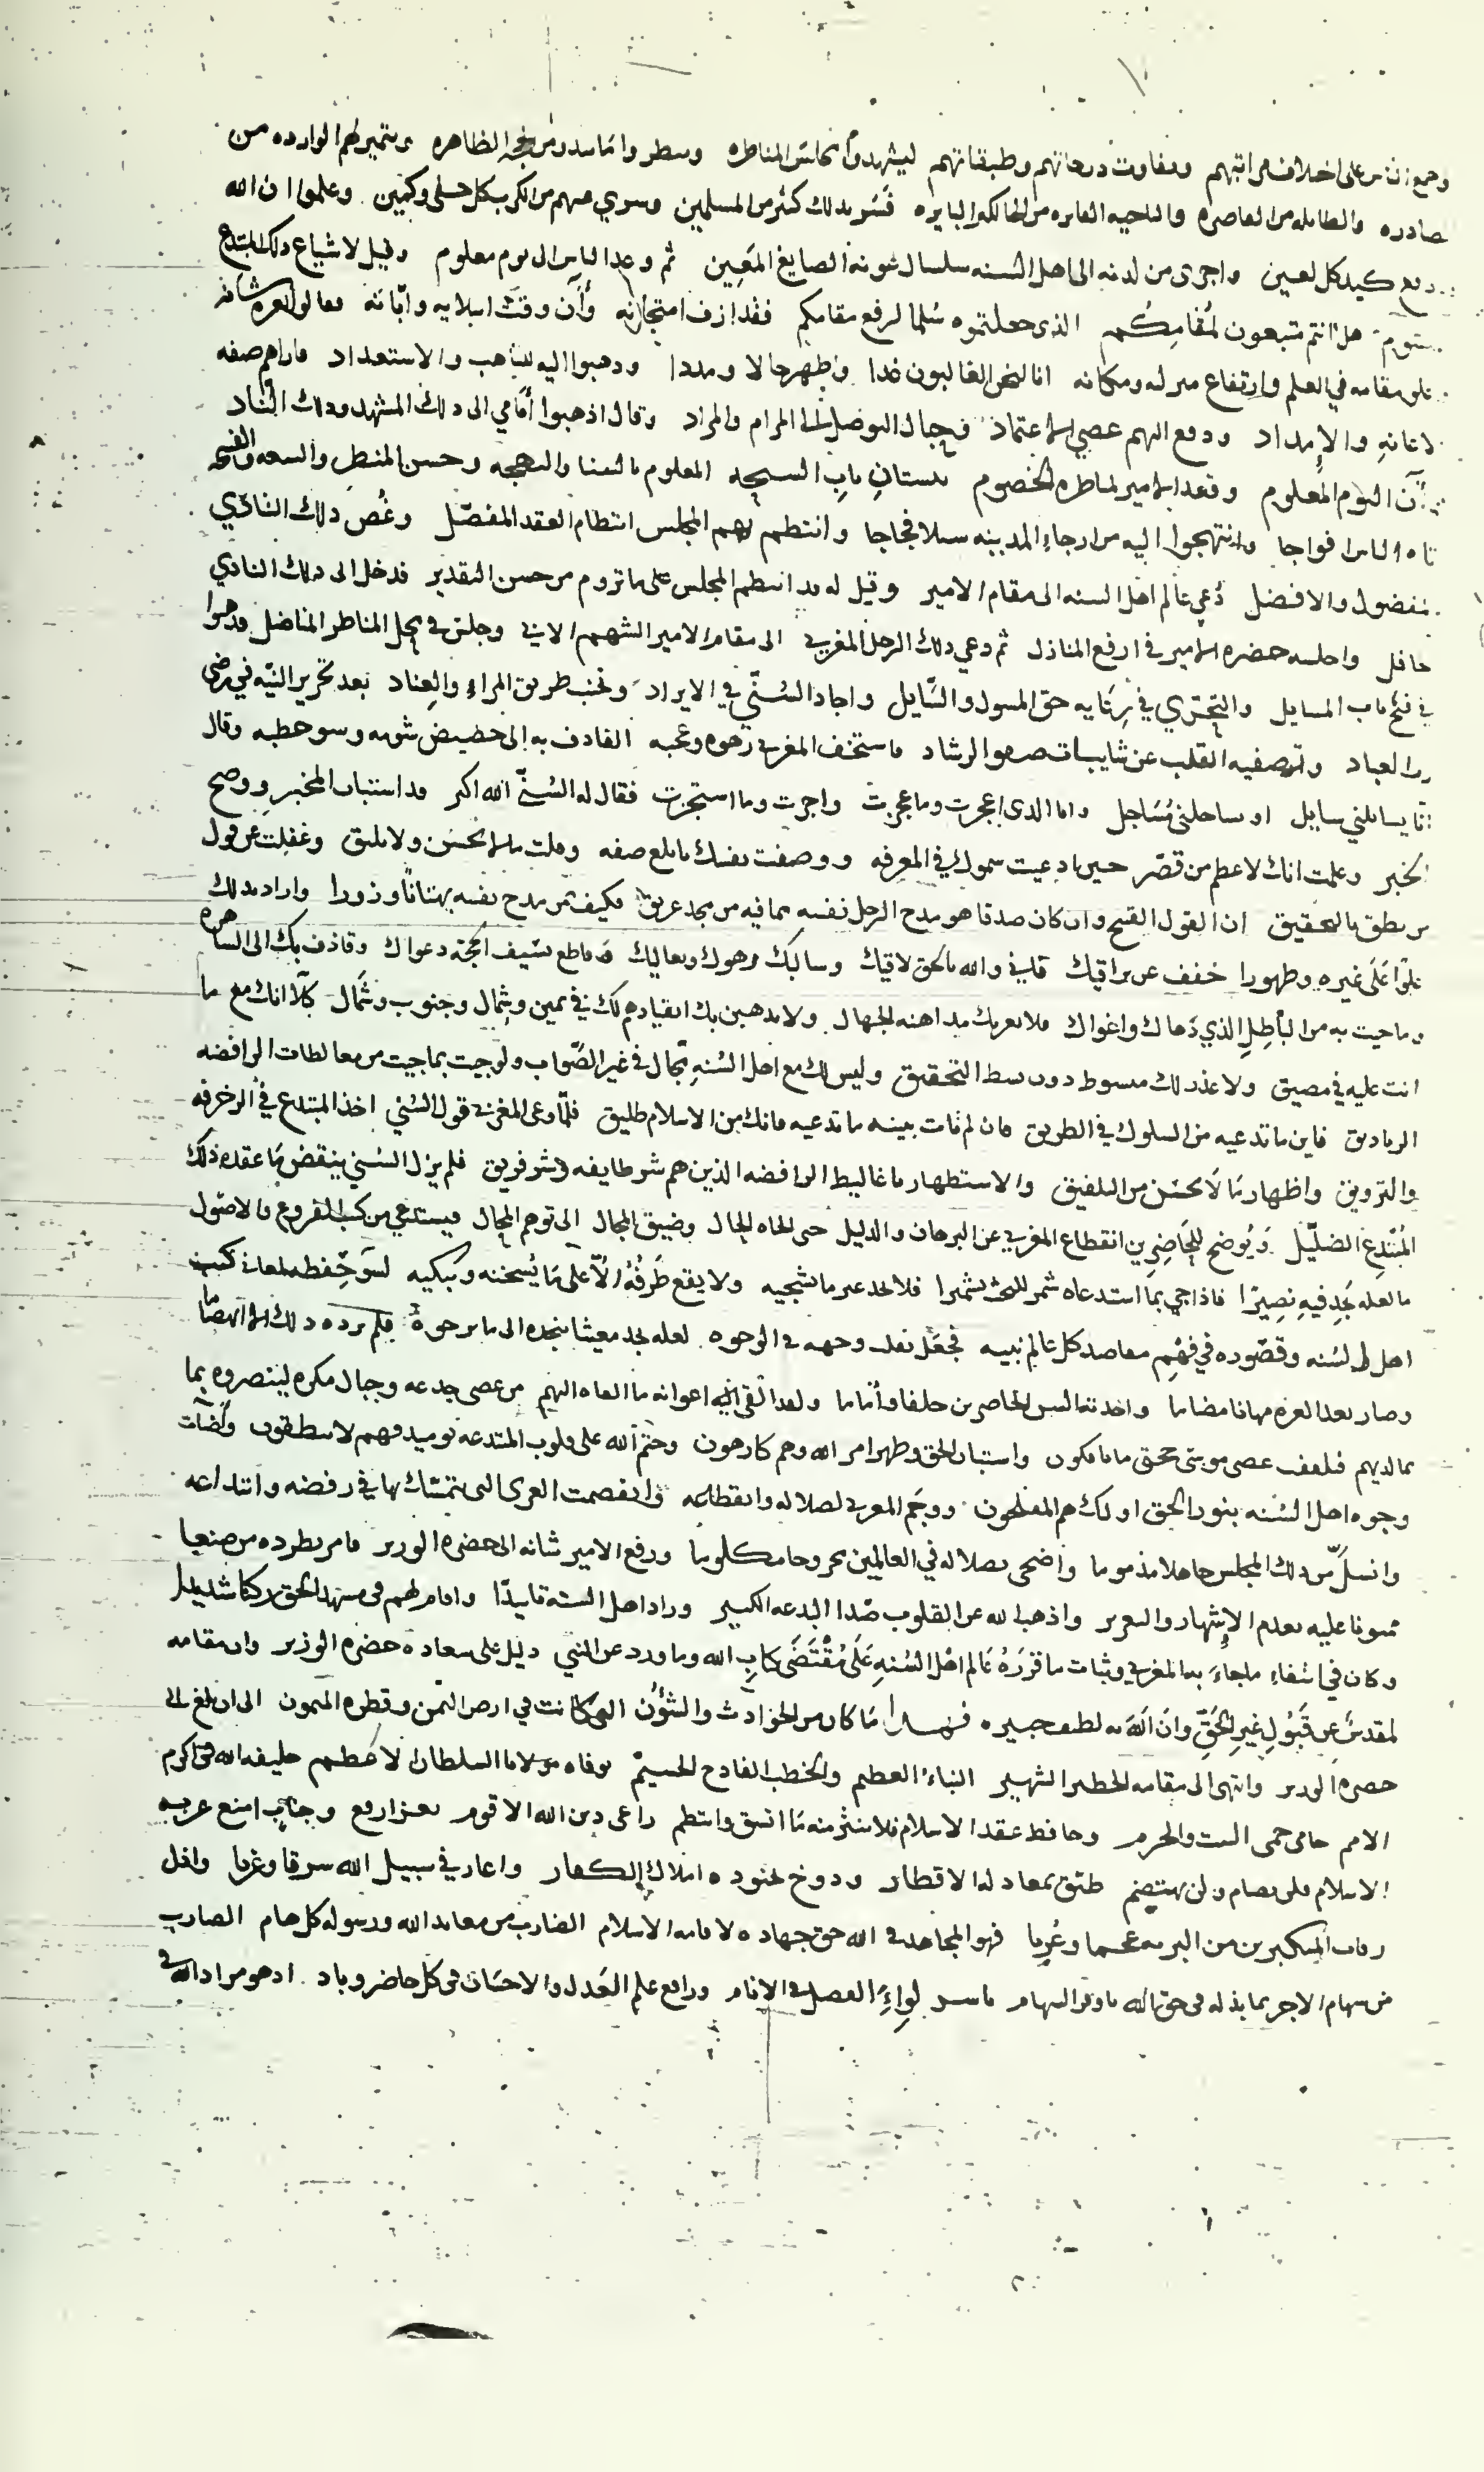 وجمع الناس على اختلاف مراتبهم وتفاوت درجاتهم وطبقاتهم ليشهدوا مجالس المناظره وينظروا ما سدو من الحجه الظاهره ويتميز لهم الوارده من
صادره والطايله من القاصره والناجيه الفايزه من الهالكه البايره فسر بذلك كثير من المسلمين وسري عنهم من الكرب كل جلي وكمين وعلموا ان الله
دفع كيد كل لعين واجرى من لدنه الى اهل السنه سلسال عونه الصايغ المعين ثم وعد الناس الى يوم معلوم وقيل لاشياع ذلك المبتدع
هل انتم متبعون لمقامكم الذي جعلتموه سلما لرفع مقامكم فقد ازف امتحانه وآن وقت ابلايه وابانه فقالوا بعزه
علو مقامه في العلم وارتفاع منزله ومكانه انا لنحن الغالبون غدا واظهر حالا ومددا وذهبوا اليه للتاهب والاستعداد فاراهم صفه
لاعانه والامداد ودفع اليهم عصي الاعتماد وحبال التوصل الى المرام والمراد وقال اذهبوا أمامي الى ذلك المشهد وذلك الناد
آن اليوم المعلوم وقعد الامير لمناظره الخصوم ببستان باب السبحه المعلوم بالسنا والبهجه وحسن المنظر والسعه والفسحه
تاه الناس افواجا وانتهجوا اليه من ارجاء المدينه سبلا فجاجا وانتظم بهم المجلس انتظام العقد المفصل وغص ذلك النادي
بمفضول والافضل دعي عالم اهل السنه الى مقام الامير وقيل له قد انتظم المجلس على ما تروم من حسن التقدير فدخل الى ذلك النادي
حافل واجلسه حضره الامير في ارفع المنازل ثم دعي ذلك الرجل المغربي الى مقام الامير الشهم الابي وجلس في محل المناظر المناضل
في فتح باب المسايل والتحري في رعايه حق المسول والسايل واجاد السني في الايراد وتجنب طريق المراء والعناد بعد تحرير النيه في رضى
رب العباد وتصفيه القلب عن شايبات الرشاد فاستخف المغربي زهوه وعجبه القاذف به الى حضيض شومه وسو خطبه وقال
ايسايلني سايل او ساجلني مساجل وانا الذي اعجزت وما عجزت واجرت وما استجرت فقال له السني الله اكبر قد استبان المخبر ووضح
الخبر وعلمت انك لاعظم من قصر حين ادعيت سموك في المعرفه ووصفت نفسك بابلغ صفه وقلت ما لا يحسن ولا يليق وغفلت عن قول
من نطق بالتحقيق ان القول القبيح وان كان صدقا هو مدح الرجل نفسه بما فيه من مجد عريق فكيف بمن مدح نفسه بهتانا وزورا واراد بذلك
علوا على غيره وظهورا خفف عن براقيك فاني والله بالحق لاقيك وسالبك زهوك وتعاليك وقاطع بسيف الحجه دعواك وقاذف بك الى الساهره
وما جيت به من الباطل الذي دهاك واغواك فلا يغرنك مداهنه الجهال ولا يذهبن بك انقيادهم لك في يمين وشمال وجنوب وشمال كلا انك مع ما
انت عليه في مضيق ولا عذر لك مبسوط دون بسط التحقيق وليس لك مع اهل السنه مجال في غير الصواب ولو جيت بما جيت من مغالطات الرافضه
الزناديق فاين ما تدعيه من السلوك في الطريق فان لم تات ببينه ما تدعيه فانك من الاسلام طليق فلما وعى المغربي قول السني اخذ المبتدع في الزخرفه
والتزويق واظهار ما لا يحسن من التلفيق والاستظهار باغاليط الرافضه الذين هم شر طايفه وشر فريق فلم يزل السني ينقض ما عقده ذلك
المبتدع الضليل ويوضح للحاضرين انقطاع المغربي عن البرهان والدليل حتى الجاه الحال وضيق المجال الى توهم المحال فيستدعي من كتب الفروع والاصول
ما لعله يجد فيه نصيرا فاذا جي بما استدعاه شمر للبحث تشميرا فلا يجد غير ما يشجيه ولا يقع طرفه الا على ما يسخنه ويبكيه لسو حفظه لمعاني كتب
اهل السنه وقصوره في فهم مقاصد كل عالم نبيه فجعل يقلب وجهه في الوجوه لعله يجد مغيثا ينجده الى ما يرجوه فلم يزده ذلك الا اهتضاما
وصار بعد العزه مهانا مضاما واخذته السن الحاضرين خلفا واماما ولقد القى اليه اعوانه ما القاه اليهم من عصي خدعه وحبال مكره لينصروه بما
بما لديهم فتلقف عصى موسى بحق ما يافكون واستبان الحق وظهر امر الله وهم كارهون وختم الله على قلوب المبتدعه يوميذ فهم لا ينطقون وأضات
وجوه اهل السنه بنور الحق اولئك هم المفلحون ووجم المغربي لضلاله وانقطاعه وانفصمت العرى التي تمسك بها في رفضه وابتداعه
وانسل من ذلك المجلس جاهلا مذموما واضحى بضلاله في العالمين مجروحا مكلوما ورفع الامير شانه الى حضره الوزير فامر بطرده من صنعا
منوفا عليه بعدم الاشهار والتعزير واذهب الله عن القلوب صدا البدعه الكبير وزاد اهل السنه تاييدا واقام لهم في مشهد الحق ركنا شديدا
وكان في انتفاء ما جاء به المغربي وثبات ما قرره عالم اهل السنه على مقتضى كتاب الله وما ورد عن النبي دليل على سعاده حضره الوزير وان مقامه
لمقدس عن قبول غير الحق وان الله به لطيف خبير فهذا ما كان من الحوادث والشؤن التي كانت في ارض اليمن وقطره الميمون الى ان بلغ الى
حضره الوزير وانتهى الى مقامه الخطير الشهير النباء العظيم والخطب الفادح الجسيم بوفاه مولانا السلطان الاعظم خليفه الله في اكرم
الامم حامي حمى البيت والحرم وحافظ عقد الاسلام فلا ينتثر منه ما اتسق وانتظم راعي دين الله الاقوم بعز ارفع وجناب امنع عز به
الاسلام فلن يضام ولن يهتضم طبق بمعادله الاقطار ودوخ بجنوده املاك الكفار واغار في سبيل الله شرقا وغربا واذل
رقاب المتكبرين من البريه عجما وعربا فهو المجاهد في الله حق جهاده لاقامه الاسلام الضارب من معاند الله ورسوله كل هام الضارب
من سهام الاجر بما بذله في حق الله باوفر السهام ناشر لواء الفضل في الانام ورافع علم العدل والاحسان في كل حاضر وباد اذ هو مراد الله في